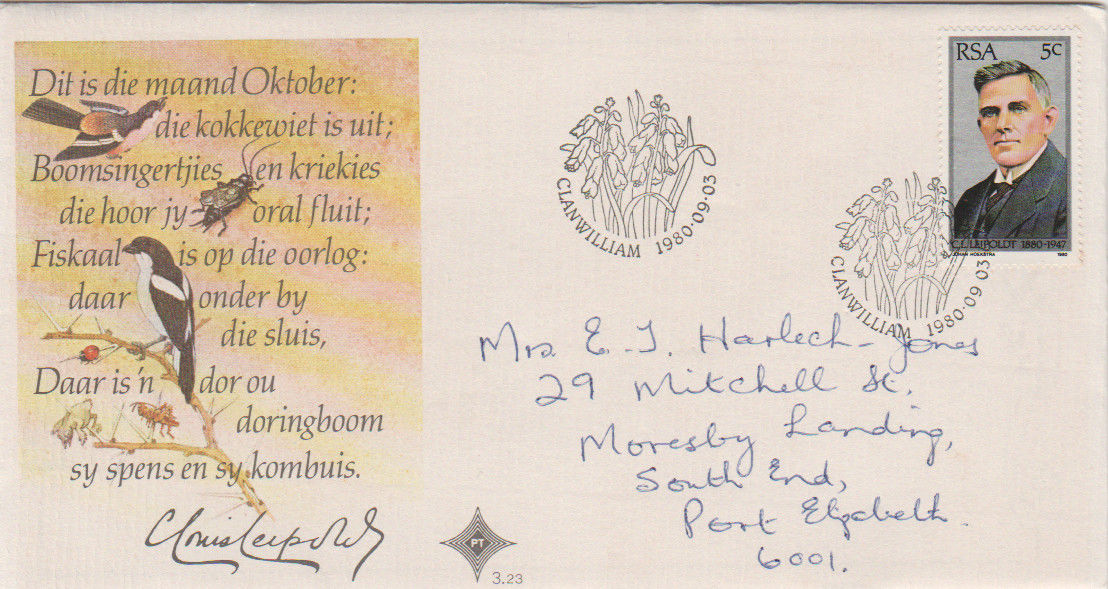 Dit is die maand Oktober:
die kokkewiet is uit;
Boomsingertjies en kriekies
die hoor jy oral fluit;
Fiskaal is op die oorlog:
daar onder by
die sluis,
Daar is 'n dor ou
doringboom
sy spens en sy kombuis.
C Louis Leipoldt
PT
3.23
CLANWILLIAM 1980·09·03
RSA 5c
C.L. LEIPOLDT 1880-1947
JOHAN HOEKSTRA 1980
CLANWILLIAM 1980·09·03
Mrs. E. J. Harlech-Jones
29 Mitchell St.
Moresby Landing,
South End,
Port Elizabeth.
6001.